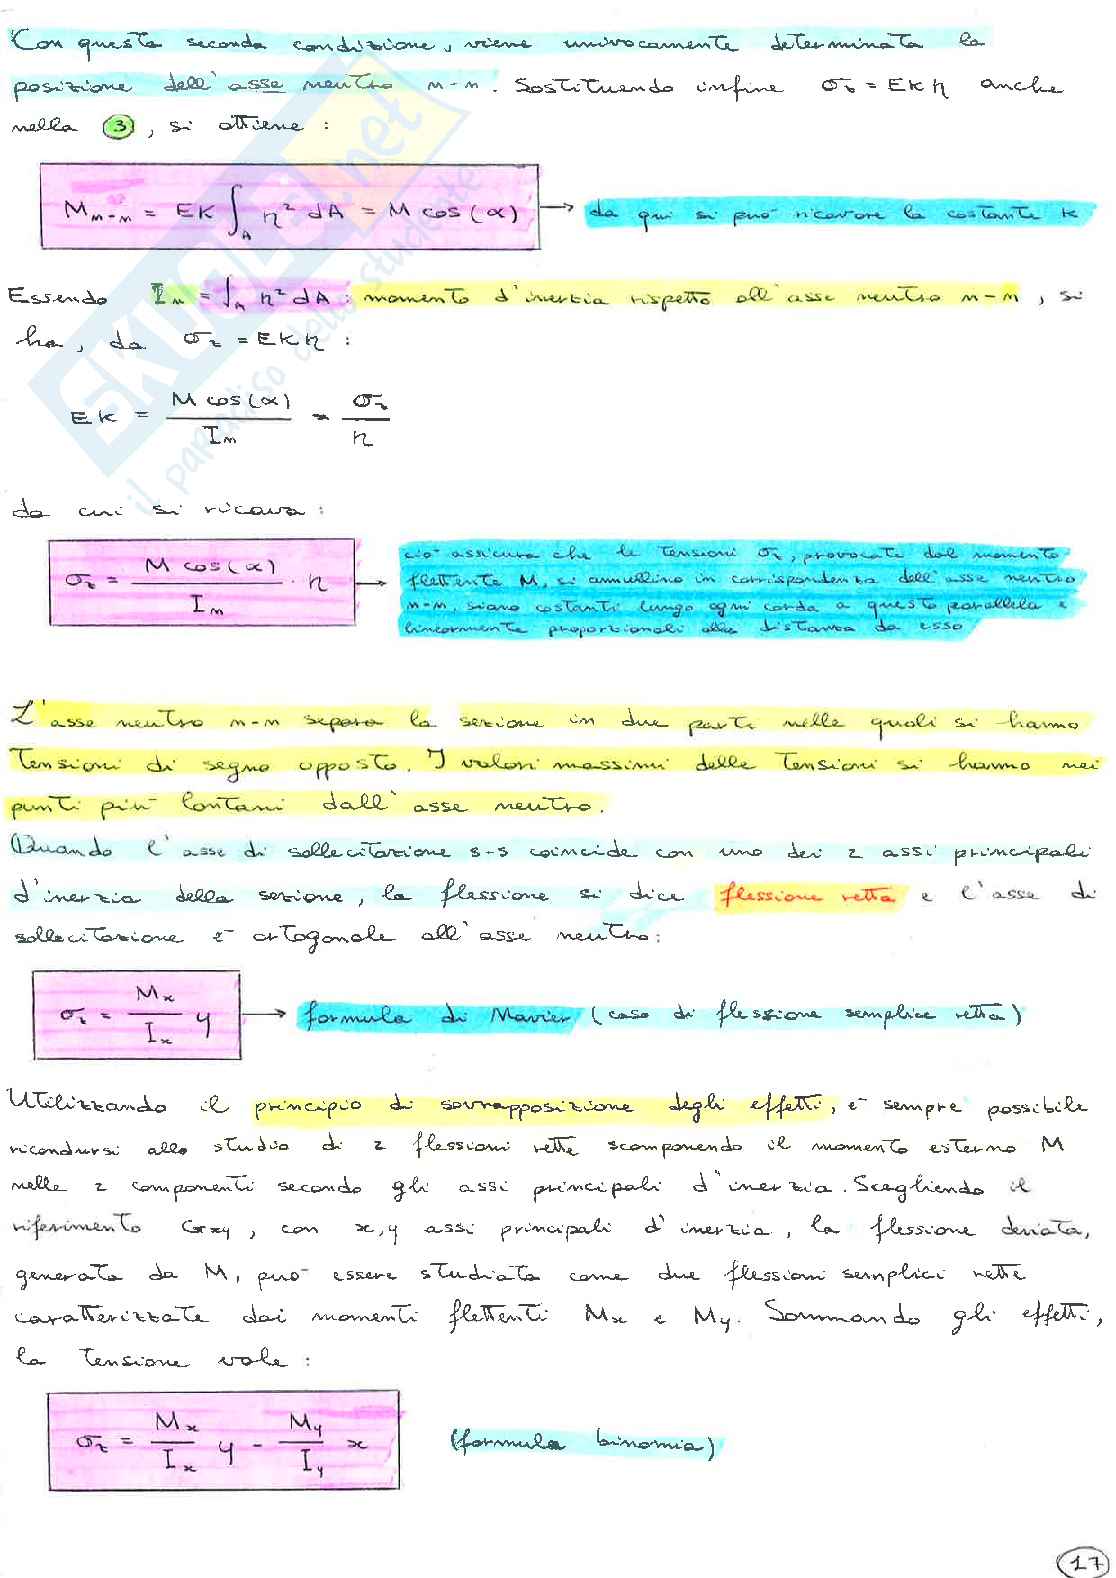 Con questa seconda condizione, viene univocamente determinata la
posizione dell'asse neutro n-n. Sostituendo infine σz = EKη anche
nella ③, si ottiene :
Mn-n = EK ∫A η² dA = M cos(α) → da qui si può ricavare la costante K
Essendo In = ∫A η² dA : momento d'inerzia rispetto all'asse neutro n-n, si
ha, da σz = EKη :
EK = M cos(α) / In = σz / η
da cui si ricava :
σz = M cos(α) / In · η → ciò assicura che le tensioni σz, provocate dal momento
flettente M, si annullino in corrispondenza dell'asse neutro
n-n, siano costanti lungo ogni corda a questo parallela e
linearmente proporzionali alla distanza da esso
L'asse neutro n-n separa la sezione in due parti nelle quali si hanno
tensioni di segno opposto. I valori massimi delle tensioni si hanno nei
punti più lontani dall'asse neutro.
Quando l'asse di sollecitazione s-s coincide con uno dei 2 assi principali
d'inerzia della sezione, la flessione si dice flessione retta e l'asse di
sollecitazione è ortogonale all'asse neutro:
σz = Mx / Ix y → formula di Navier (caso di flessione semplice retta)
Utilizzando il principio di sovrapposizione degli effetti, è sempre possibile
ricondursi allo studio di 2 flessioni rette scomponendo il momento esterno M
nelle 2 componenti secondo gli assi principali d'inerzia. Scegliendo il
riferimento Gxy, con x,y assi principali d'inerzia, la flessione deviata,
generata da M, può essere studiata come due flessioni semplici rette
caratterizzate dai momenti flettenti Mx e My. Sommando gli effetti,
la tensione vale :
σz = Mx / Ix y - My / Iy x (formula binomia)
17
SKUOLA.net
il paradiso dello studente